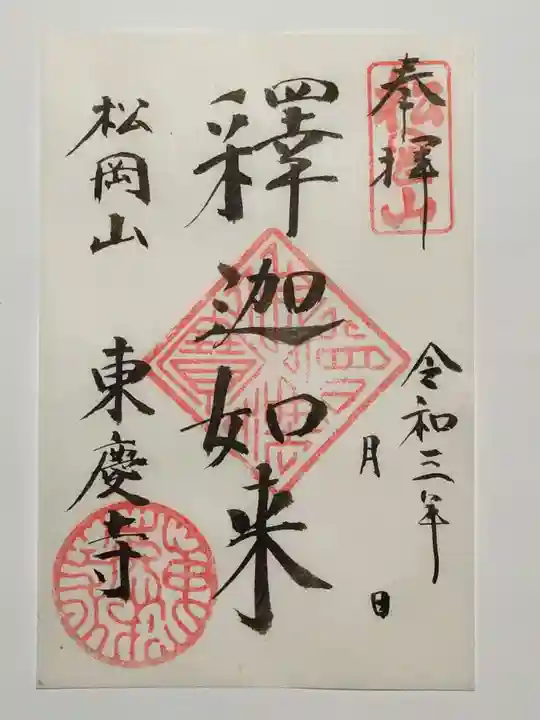 奉拝
松岡山
令和三年
月 日
釋迦如来
松岡山
東慶寺